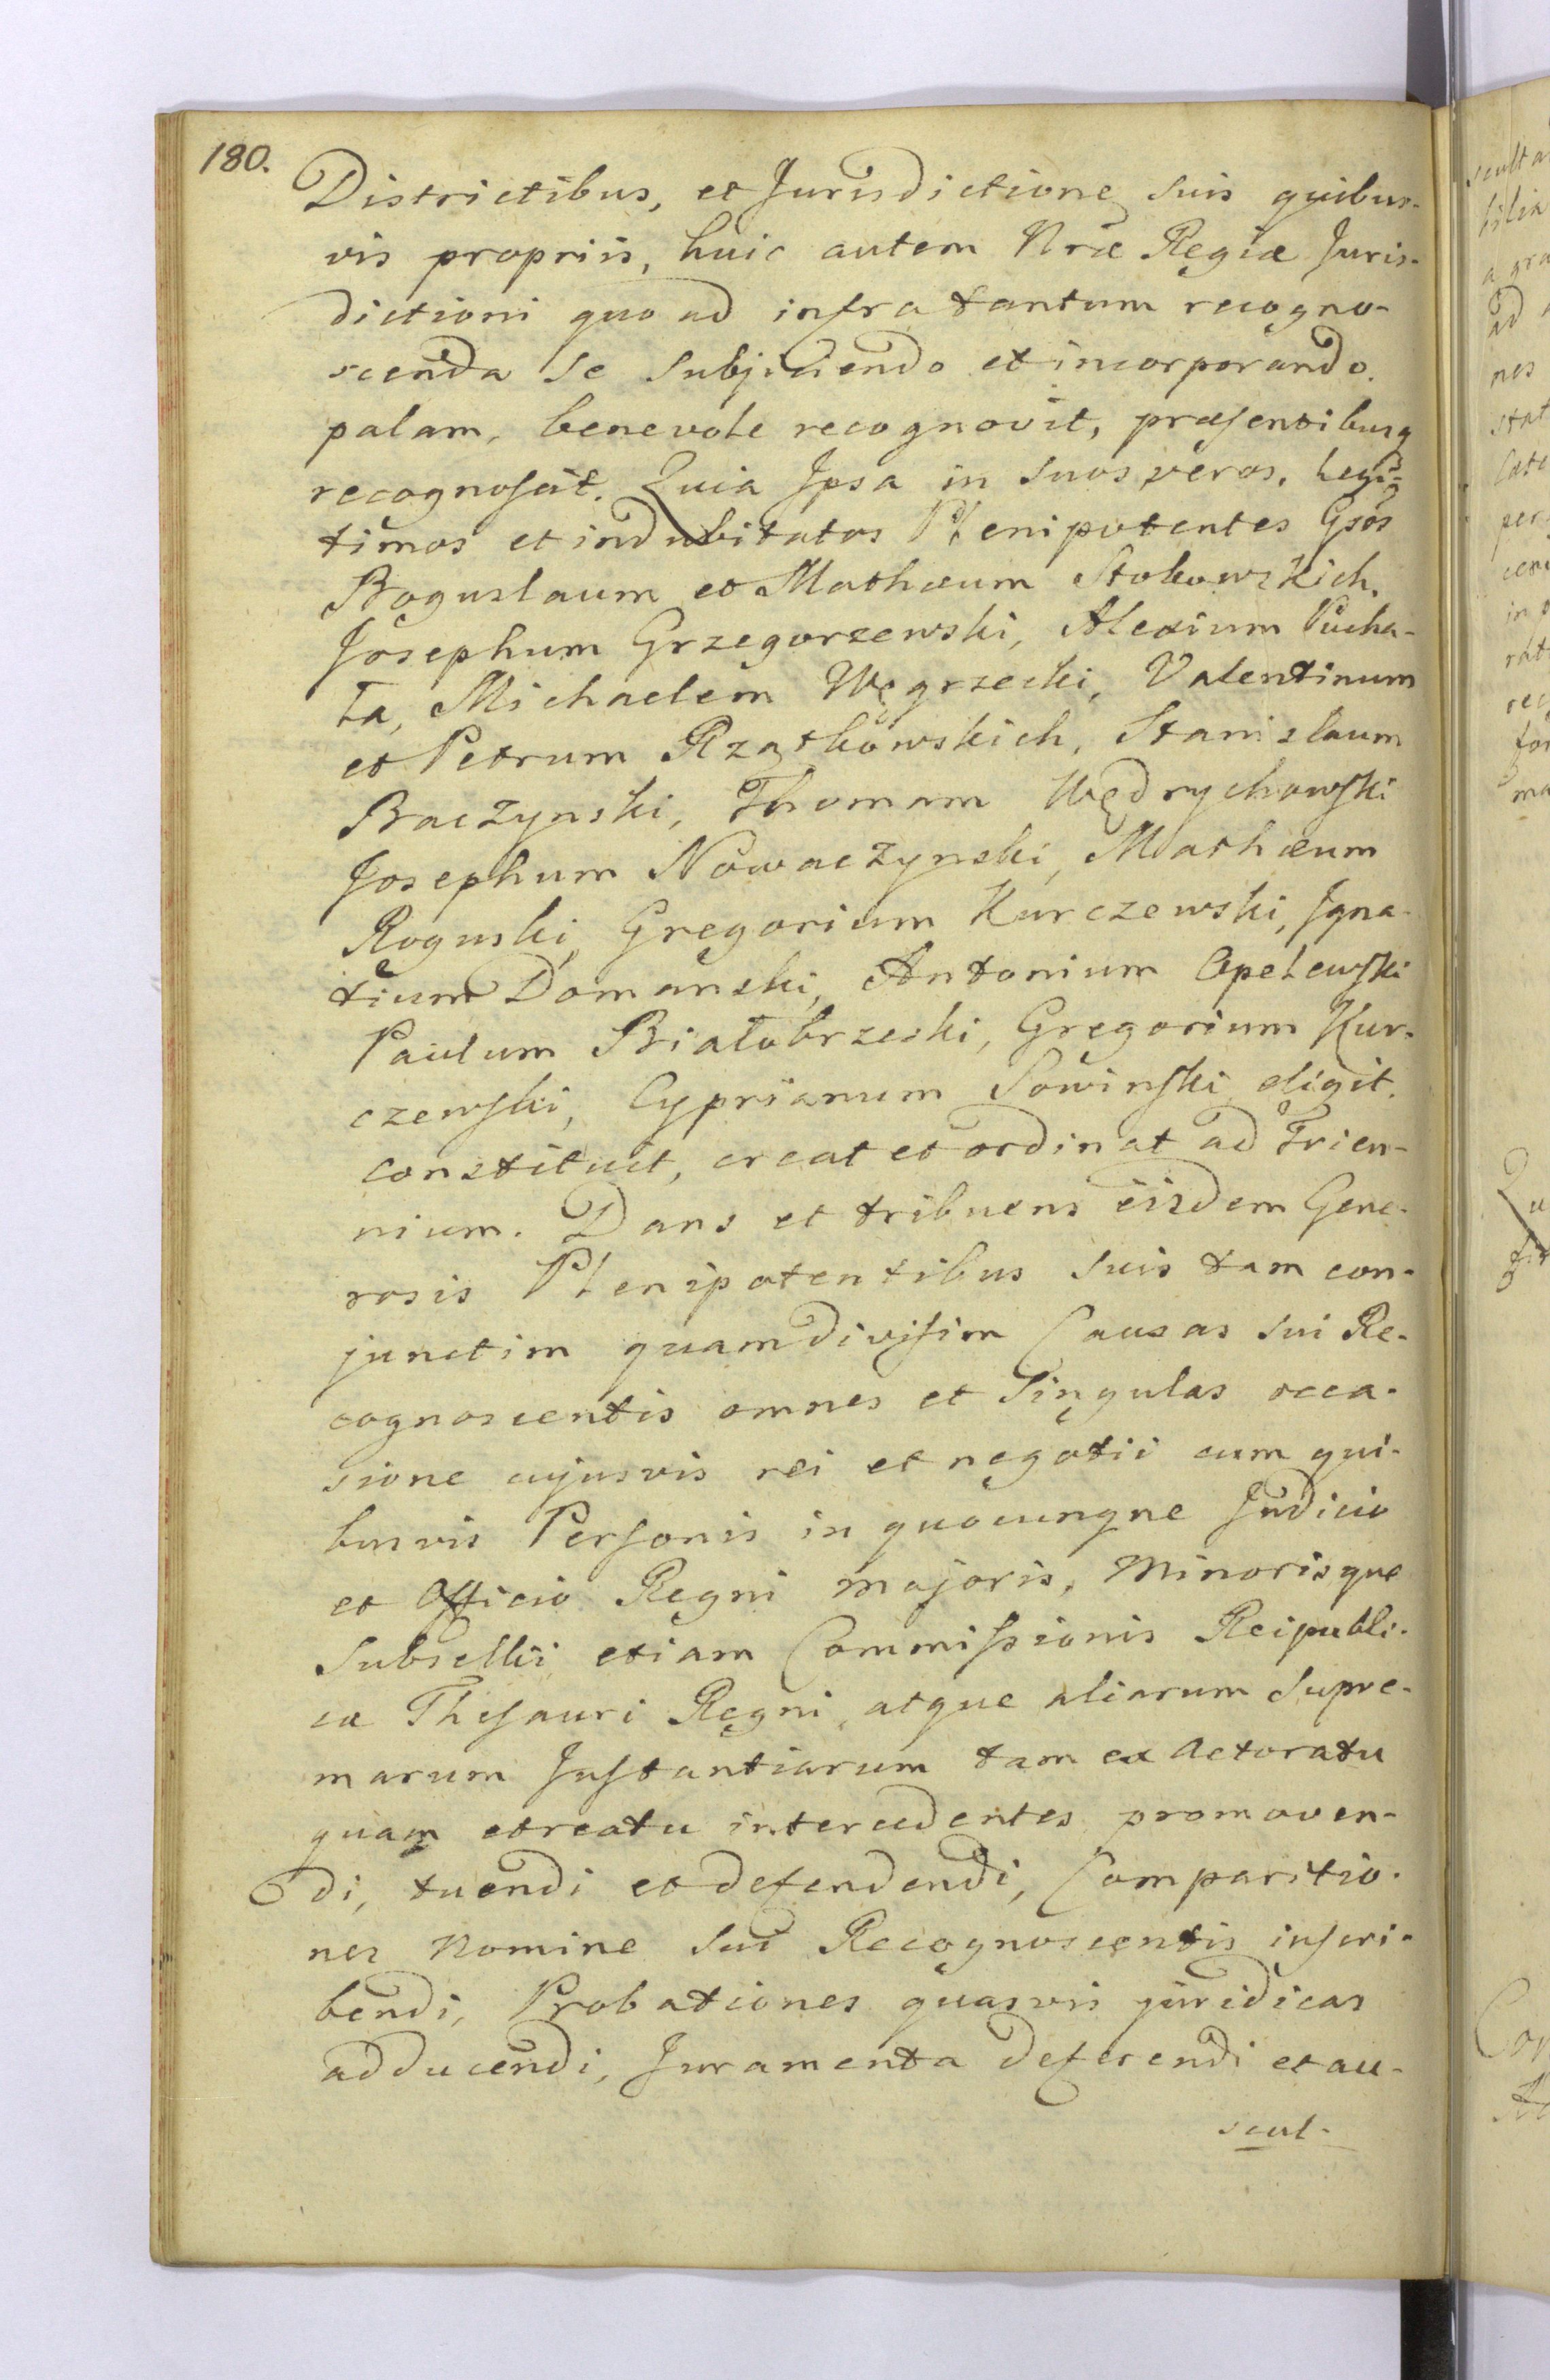 180.
Districtibus, et Jurisdictione suis quibus-
vis propriis, huic autem Nræ Regiæ Juris-
dictioni quo ad infra tantum recogno-
scenda se subjiciendo et incorporando.
palam, benevole recognovit, præsentibusq
recognoscit. Quia Ipsa in suos veros, Legi-
timos et indubitatos Plenipotentes Gsos
Boguslaum et Mathæum Stokowskich,
Josephum Grzegorzewski, Alexium Pucha-
ła, Michaelem Węgrzecki, Valentinum
et Petrum Rzątkowskich, Stanislaum
Baczynski, Thomam Wędrychowski
Josephum Nowaczynski, Mathæum
Roguski, Gregorium Kurczewski, Igna-
tium Domanski, Antonium Opelewski
Paulum Białobrzeski, Gregorium Kur-
czewski, Cyprianum Sowinski eligit.
constituit, creat et ordinat ad Trien-
nium. Dans et tribuens eisdem Gene-
rosis Plenipotentibus suis tam con-
junctim quam divisim Causas sui Re-
cognoscentis omnes et singulas occa-
sione cujusvis rei et negotii cum qui-
busvis Personis in quocunque Judicio
et Officio Regni majoris, Minorisque
Subsellii etiam Commissionis Reipubli-
cæ Thesauri Regni, atque aliarum supre-
marum Instantiarum tam ex Actoratu
quam et reatu intercedentes promoven-
di, tuendi et defendendi, Comparitio-
nes Nomine sui Recognoscentis inscri-
bendi, Probationes quasvis juridicas
adducendi, Juramenta deferendi et au-
scul-